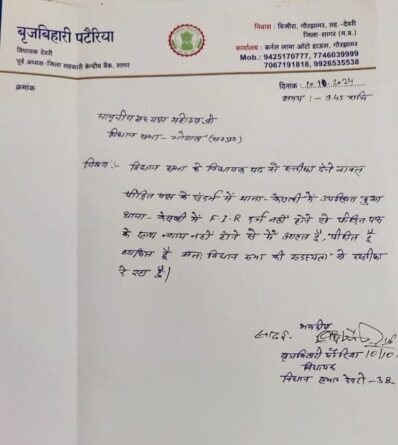 बृजबिहारी पटैरिया
विधायक देवरी
पूर्व अध्यक्ष-जिला सहकारी केन्द्रीय बैंक, सागर
निवास : बिजौरा, गौरझामर, तह.-देवरी
जिला-सागर (म.प्र.)
कार्यालय : कर्नल लामा ऑटो हाऊस, गौरझामर
Mob.: 9425170777, 7746039999
7067191818, 9926535538
क्रमांक
दिनांक : 10.10.2024
समय :- 9.45 रात्रि
माननीय अध्यक्ष महोदय जी
विधान सभा - भोपाल (म०प्र०)
विषय :- विधान सभा के विधायक पद से स्तीफा देने बाबत्
पीड़ित पक्ष के संदर्भ में थाना - केसली में उपस्थित हुआ
थाना - केसली में F.I.R दर्ज नहीं होने से पीड़ित पक्ष
के साथ न्याय नहीं होने से मैं आहत हूँ, पीड़ित हूँ
व्यथित हूँ अतः विधान सभा की सदस्यता से स्तीफा
दे रहा हूँ।
भवदीय
सादर.
बृजबिहारी पटैरिया 10/10
विधायक
विधान सभा देवरी - 38